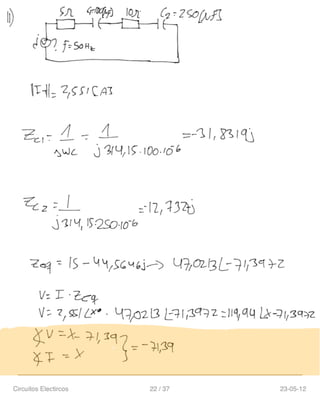 11)
5Ω C₁=100(μF) 10Ω C₂=250[μF]
? f=50Hz
|I|=2,551[A]
Zc1= 1/jwc = 1/j314,15·100·10⁻⁶ =-31,8319j
Zc2 = 1/j314,15·250·10⁻⁶ =-12,732j
Zeq = 15-44,5646j → 47,0213∠-71,3972
V= I·Zeq
V= 2,551∠x°·47,0213∠-71,3972=119,94∠x-71,3972
∡V=x-71,39
∡I=x } =-71,39
Circuitos Electircos 22 / 37 23-05-12